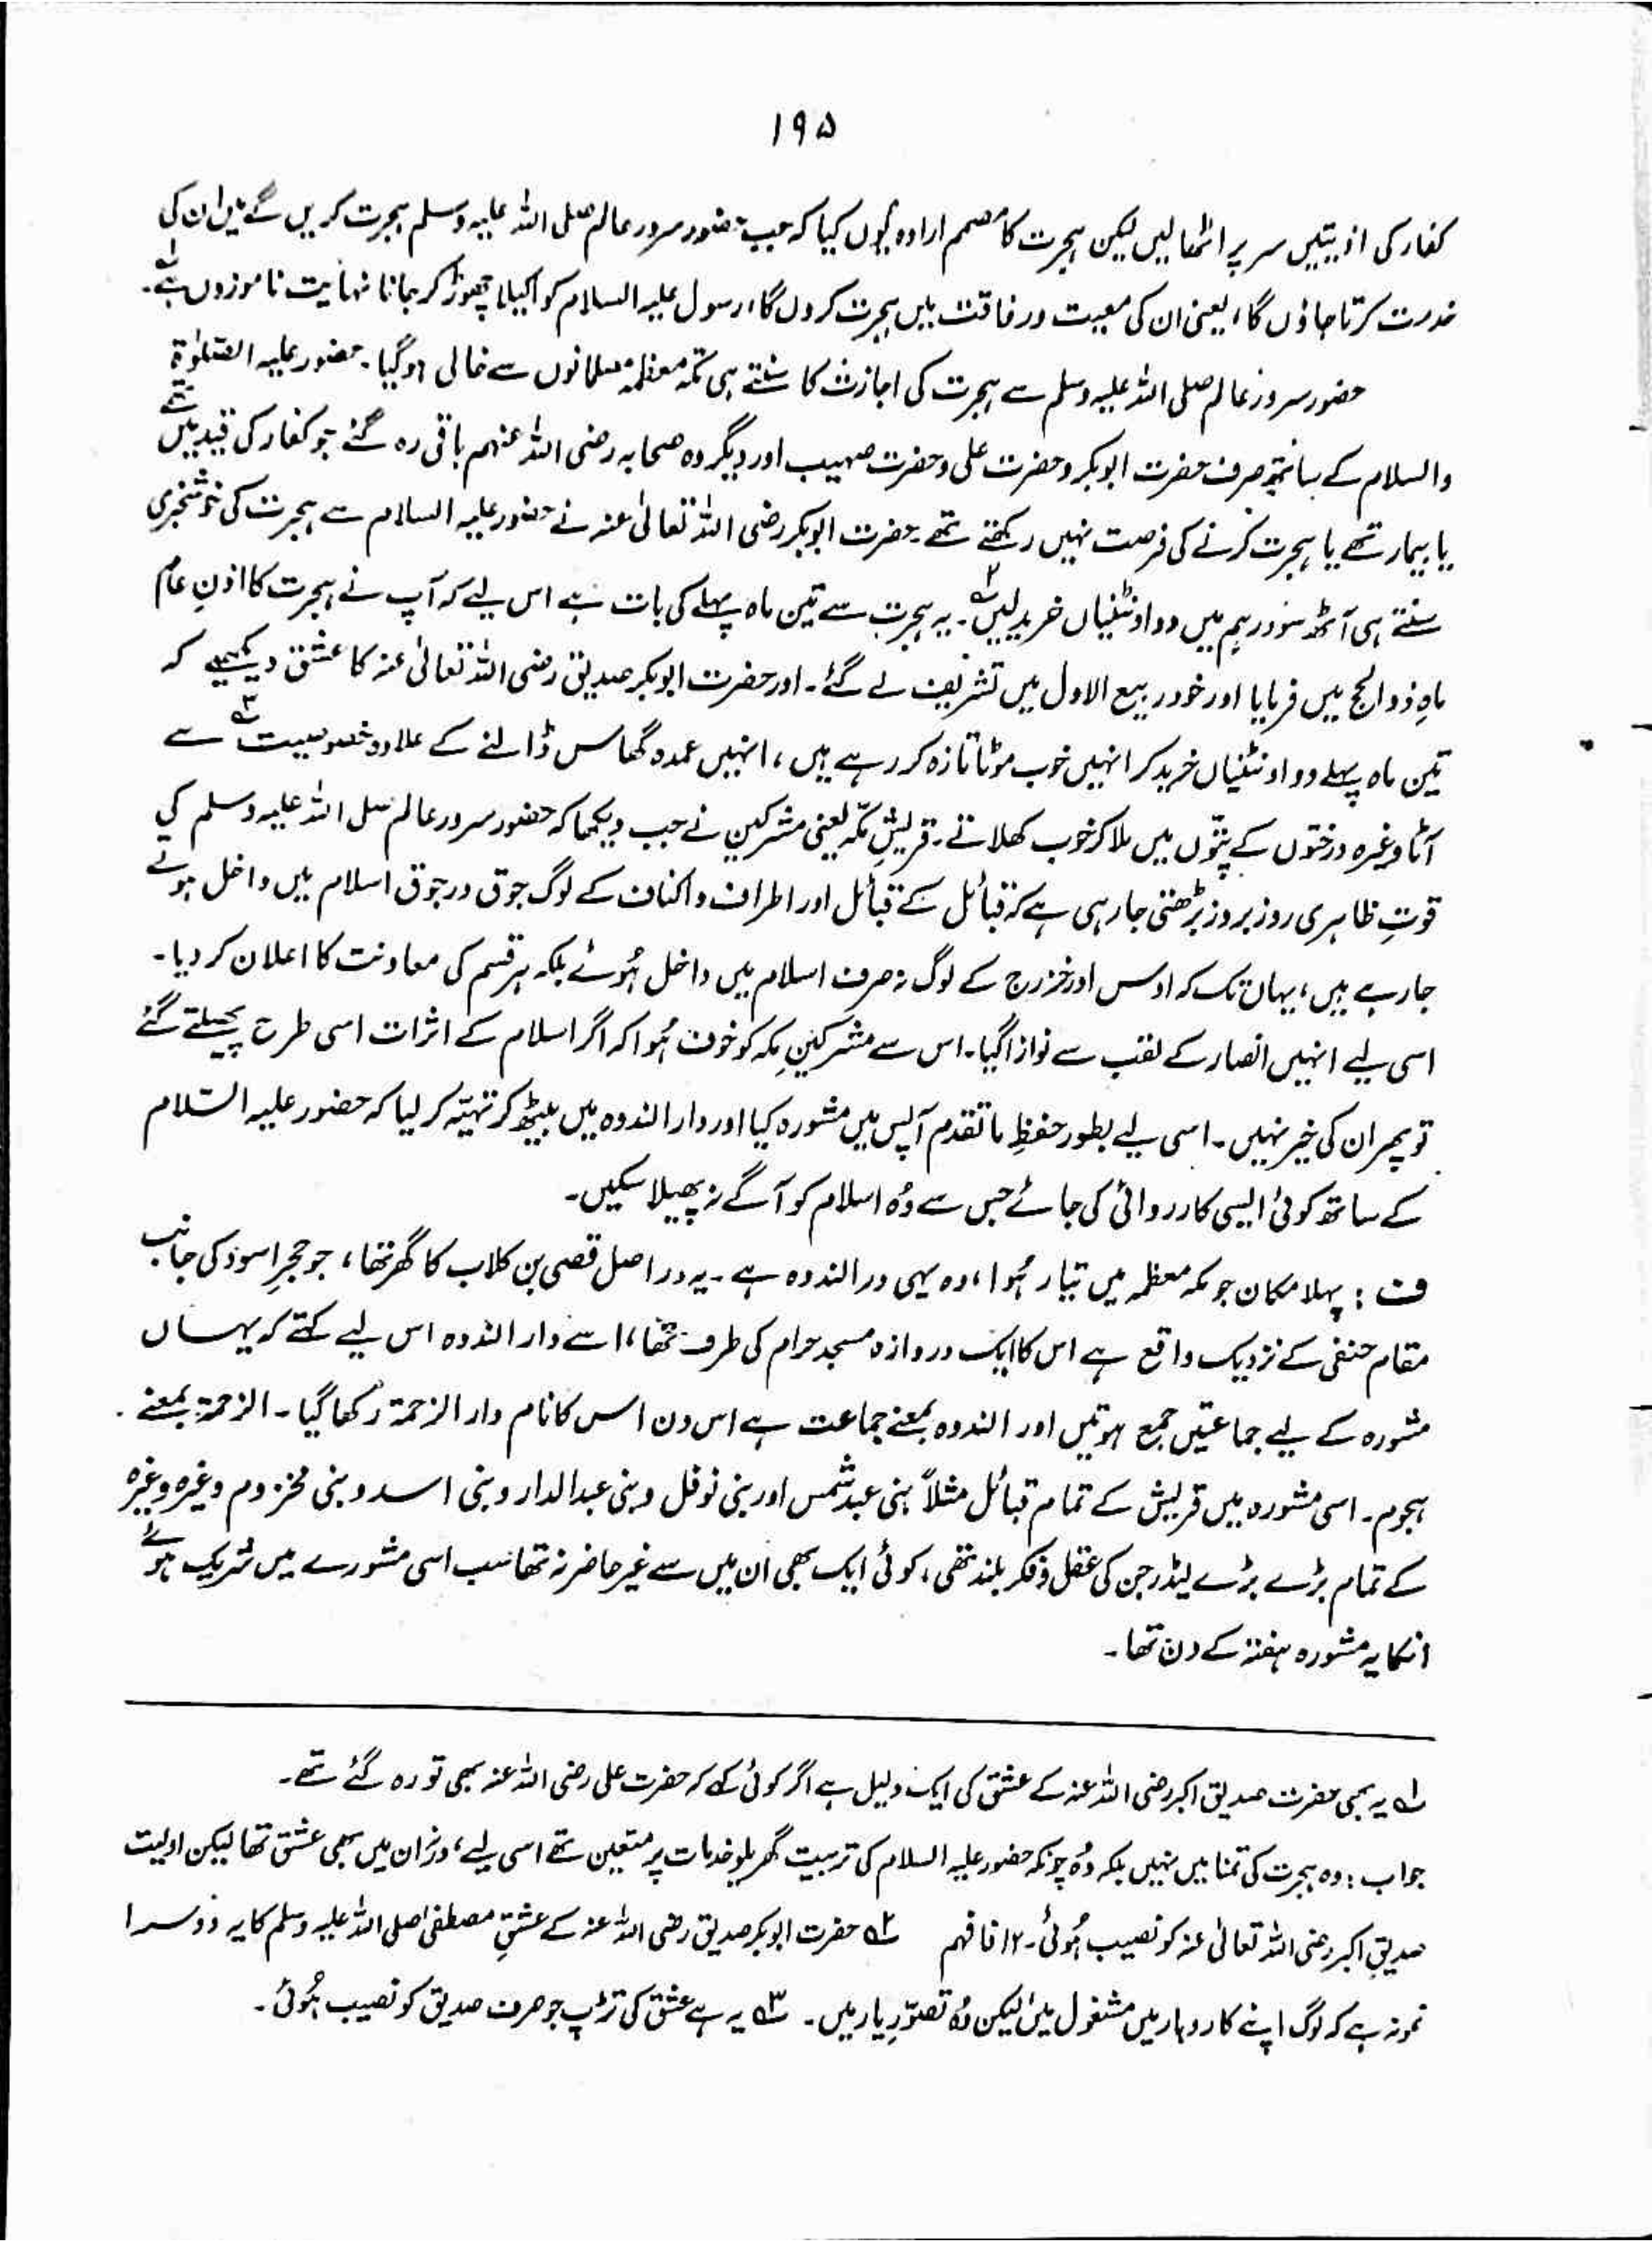 ۱۹۵
کفار کی اذیتیں سر پر اٹھا لیں لیکن ہجرت کا مصمم ارادہ یُوں کیا کہ جب حضور سرور عالم صلی اللہ علیہ وسلم ہجرت کریں گے میں ان کی
خدمت کرتا جاؤں گا، یعنی ان کی معیت ورفاقت میں ہجرت کروں گا، رسول علیہ السلام کو اکیلا چھوڑ کر جانا نہایت ناموزوں ہے۔ ۱؎
حضور سرور عالم صلی اللہ علیہ وسلم سے ہجرت کی اجازت کا سنتے ہی مکہ معظمہ مسلمانوں سے خالی ہوگیا۔ حضور علیہ الصّلوٰۃ
والسلام کے ساتھ صرف حضرت ابوبکر و حضرت علی و حضرت صہیب اور دیگر وہ صحابہ رضی اللہ عنہم باقی رہ گئے جو کفار کی قید میں تھے
یا بیمار تھے یا ہجرت کرنے کی فرصت نہیں رکھتے تھے۔ حضرت ابوبکر رضی اللہ تعالیٰ عنہ نے حضور علیہ السلام سے ہجرت کی خوشخبری
سنتے ہی آٹھ سو درہم میں دو اونٹنیاں خرید لیں ۲؎۔ یہ ہجرت سے تین ماہ پہلے کی بات ہے اس لیے کہ آپ نے ہجرت کا اذنِ عام
ماہِ ذوالحج میں فرمایا اور خود ربیع الاول میں تشریف لے گئے۔ اور حضرت ابوبکر صدیق رضی اللہ تعالیٰ عنہ کا عشق دیکھیے کہ
تین ماہ پہلے دو اونٹنیاں خرید کر انہیں خوب موٹا تازہ کر رہے ہیں، انہیں عمدہ گھاس ڈالنے کے علاوہ خصوصیت ۳؎ سے
آٹا وغیرہ درختوں کے پتّوں میں ملا کر خوب کھلاتے۔ قریشِ مکّہ یعنی مشرکین نے جب دیکھا کہ حضور سرور عالم صلی اللہ علیہ وسلم کی
قوتِ ظاہری روز بروز بڑھتی جا رہی ہے کہ قبائل کے قبائل اور اطراف و اکناف کے لوگ جوق در جوق اسلام میں داخل ہوتے
جا رہے ہیں، یہاں تک کہ اوس اور خزرج کے لوگ نہ صرف اسلام میں داخل ہُوئے بلکہ ہر قسم کی معاونت کا اعلان کر دیا۔
اسی لیے انہیں انصار کے لقب سے نوازا گیا۔ اس سے مشرکینِ مکہ کو خوف ہُوا کہ اگر اسلام کے اثرات اسی طرح پھیلتے گئے
تو پھر ان کی خیر نہیں۔ اسی لیے بطور حفظِ ما تقدم آپس میں مشورہ کیا اور دار الندوہ میں بیٹھ کر تہیّہ کر لیا کہ حضور علیہ السّلام
کے ساتھ کوئی ایسی کارروائی کی جائے جس سے وُہ اسلام کو آگے نہ پھیلا سکیں۔
ف : پہلا مکان جو مکہ معظمہ میں تیار ہُوا، وہ یہی در الندوہ ہے۔ یہ در اصل قصی بن کلاب کا گھر تھا، جو حجرِ اسود کی جانب
مقام حنفی کے نزدیک واقع ہے اس کا ایک دروازہ مسجد حرام کی طرف تھا، اسے دار الندوہ اس لیے کہتے کہ یہاں
مشورہ کے لیے جماعتیں جمع ہوتیں اور الندوہ بمعنے جماعت ہے اس دن اس کا نام دار الزحمۃ رکھا گیا۔ الزحمۃ بمعنے
ہجوم۔ اسی مشورہ میں قریش کے تمام قبائل مثلاً بنی عبد شمس اور بنی نوفل و بنی عبد الدار و بنی اسد و بنی مخزوم وغیرہ وغیرہ
کے تمام بڑے بڑے لیڈر جن کی عقل و فکر بلند تھی، کوئی ایک بھی ان میں سے غیر حاضر نہ تھا سب اسی مشورے میں شریک ہوئے
انکا یہ مشورہ ہفتہ کے دن تھا۔
۱؎ یہ بھی حضرت صدیق اکبر رضی اللہ عنہ کے عشق کی ایک دلیل ہے اگر کوئی کہے کہ حضرت علی رضی اللہ عنہ بھی تو رہ گئے تھے۔
جواب : وہ ہجرت کی تمنا میں نہیں بلکہ وُہ چونکہ حضور علیہ السلام کی تربیت گھریلو خدمات پر متعین تھے اسی لیے، ورنہ ان میں بھی عشق تھا لیکن اولیت
صدیقِ اکبر رضی اللہ تعالیٰ عنہ کو نصیب ہُوئی۔ ۱۲ فافہم ۲؎ حضرت ابوبکر صدیق رضی اللہ عنہ کے عشقِ مصطفیٰ صلی اللہ علیہ وسلم کا یہ دوسرا
نمونہ ہے کہ لوگ اپنے کاروبار میں مشغول ہیں لیکن وُہ تصوّرِ یار میں۔ ۳؎ یہ ہے عشق کی تڑپ جو صرف صدیق کو نصیب ہُوئی۔